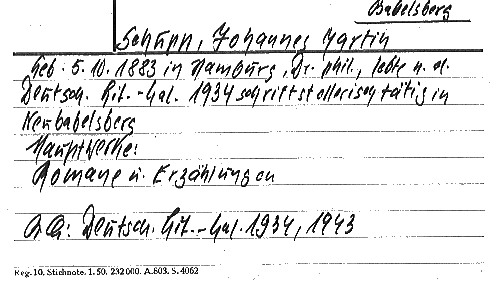 Babelsberg
Schupp, Johannes Martin
Geb. 5.10.1883 in Hamburg, Dr. phil., lebte n. d.
Deutsch. Lit.-Kal. 1934 schriftstellerisch tätig in
Neubabelsberg
Hauptwerke:
Romane u. Erzählungen
Qu: Deutsch. Lit.-Kal. 1934, 1943
Reg. 10. Stichnote. 1. 50. 232 000. A.803. S. 4062